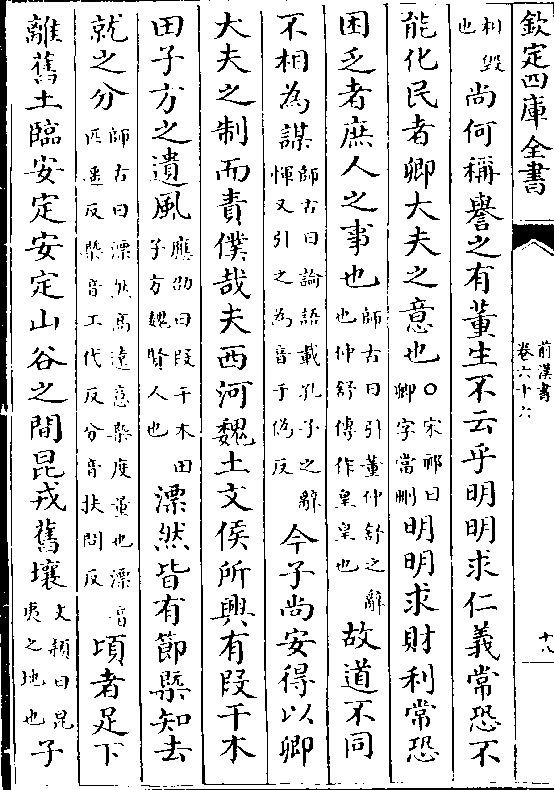 欽定四庫全書
前漢書
卷六十六
十八
利毀
也
尚何稱譽之有董生不云乎明明求仁義常恐不
能化民者卿大夫之意也
○宋祁曰
卿字當刪
明明求財利常恐
困乏者庶人之事也
師古曰引董仲舒之辭
也仲舒傳作皇皇也
故道不同
不相為謀
師古曰論語載孔子之辭
惲又引之為音于偽反
今子尚安得以卿
大夫之制而責僕哉夫西河魏土文侯所興有段干木
田子方之遺風
應劭曰段干木田
子方魏賢人也
漂然皆有節槩知去
就之分
師古曰漂然高遠意槩度量也漂音
匹遥反槩音工代反分音扶問反
頃者足下
離舊土臨安定安定山谷之間昆戎舊壤
文頴曰昆
夷之地也
子